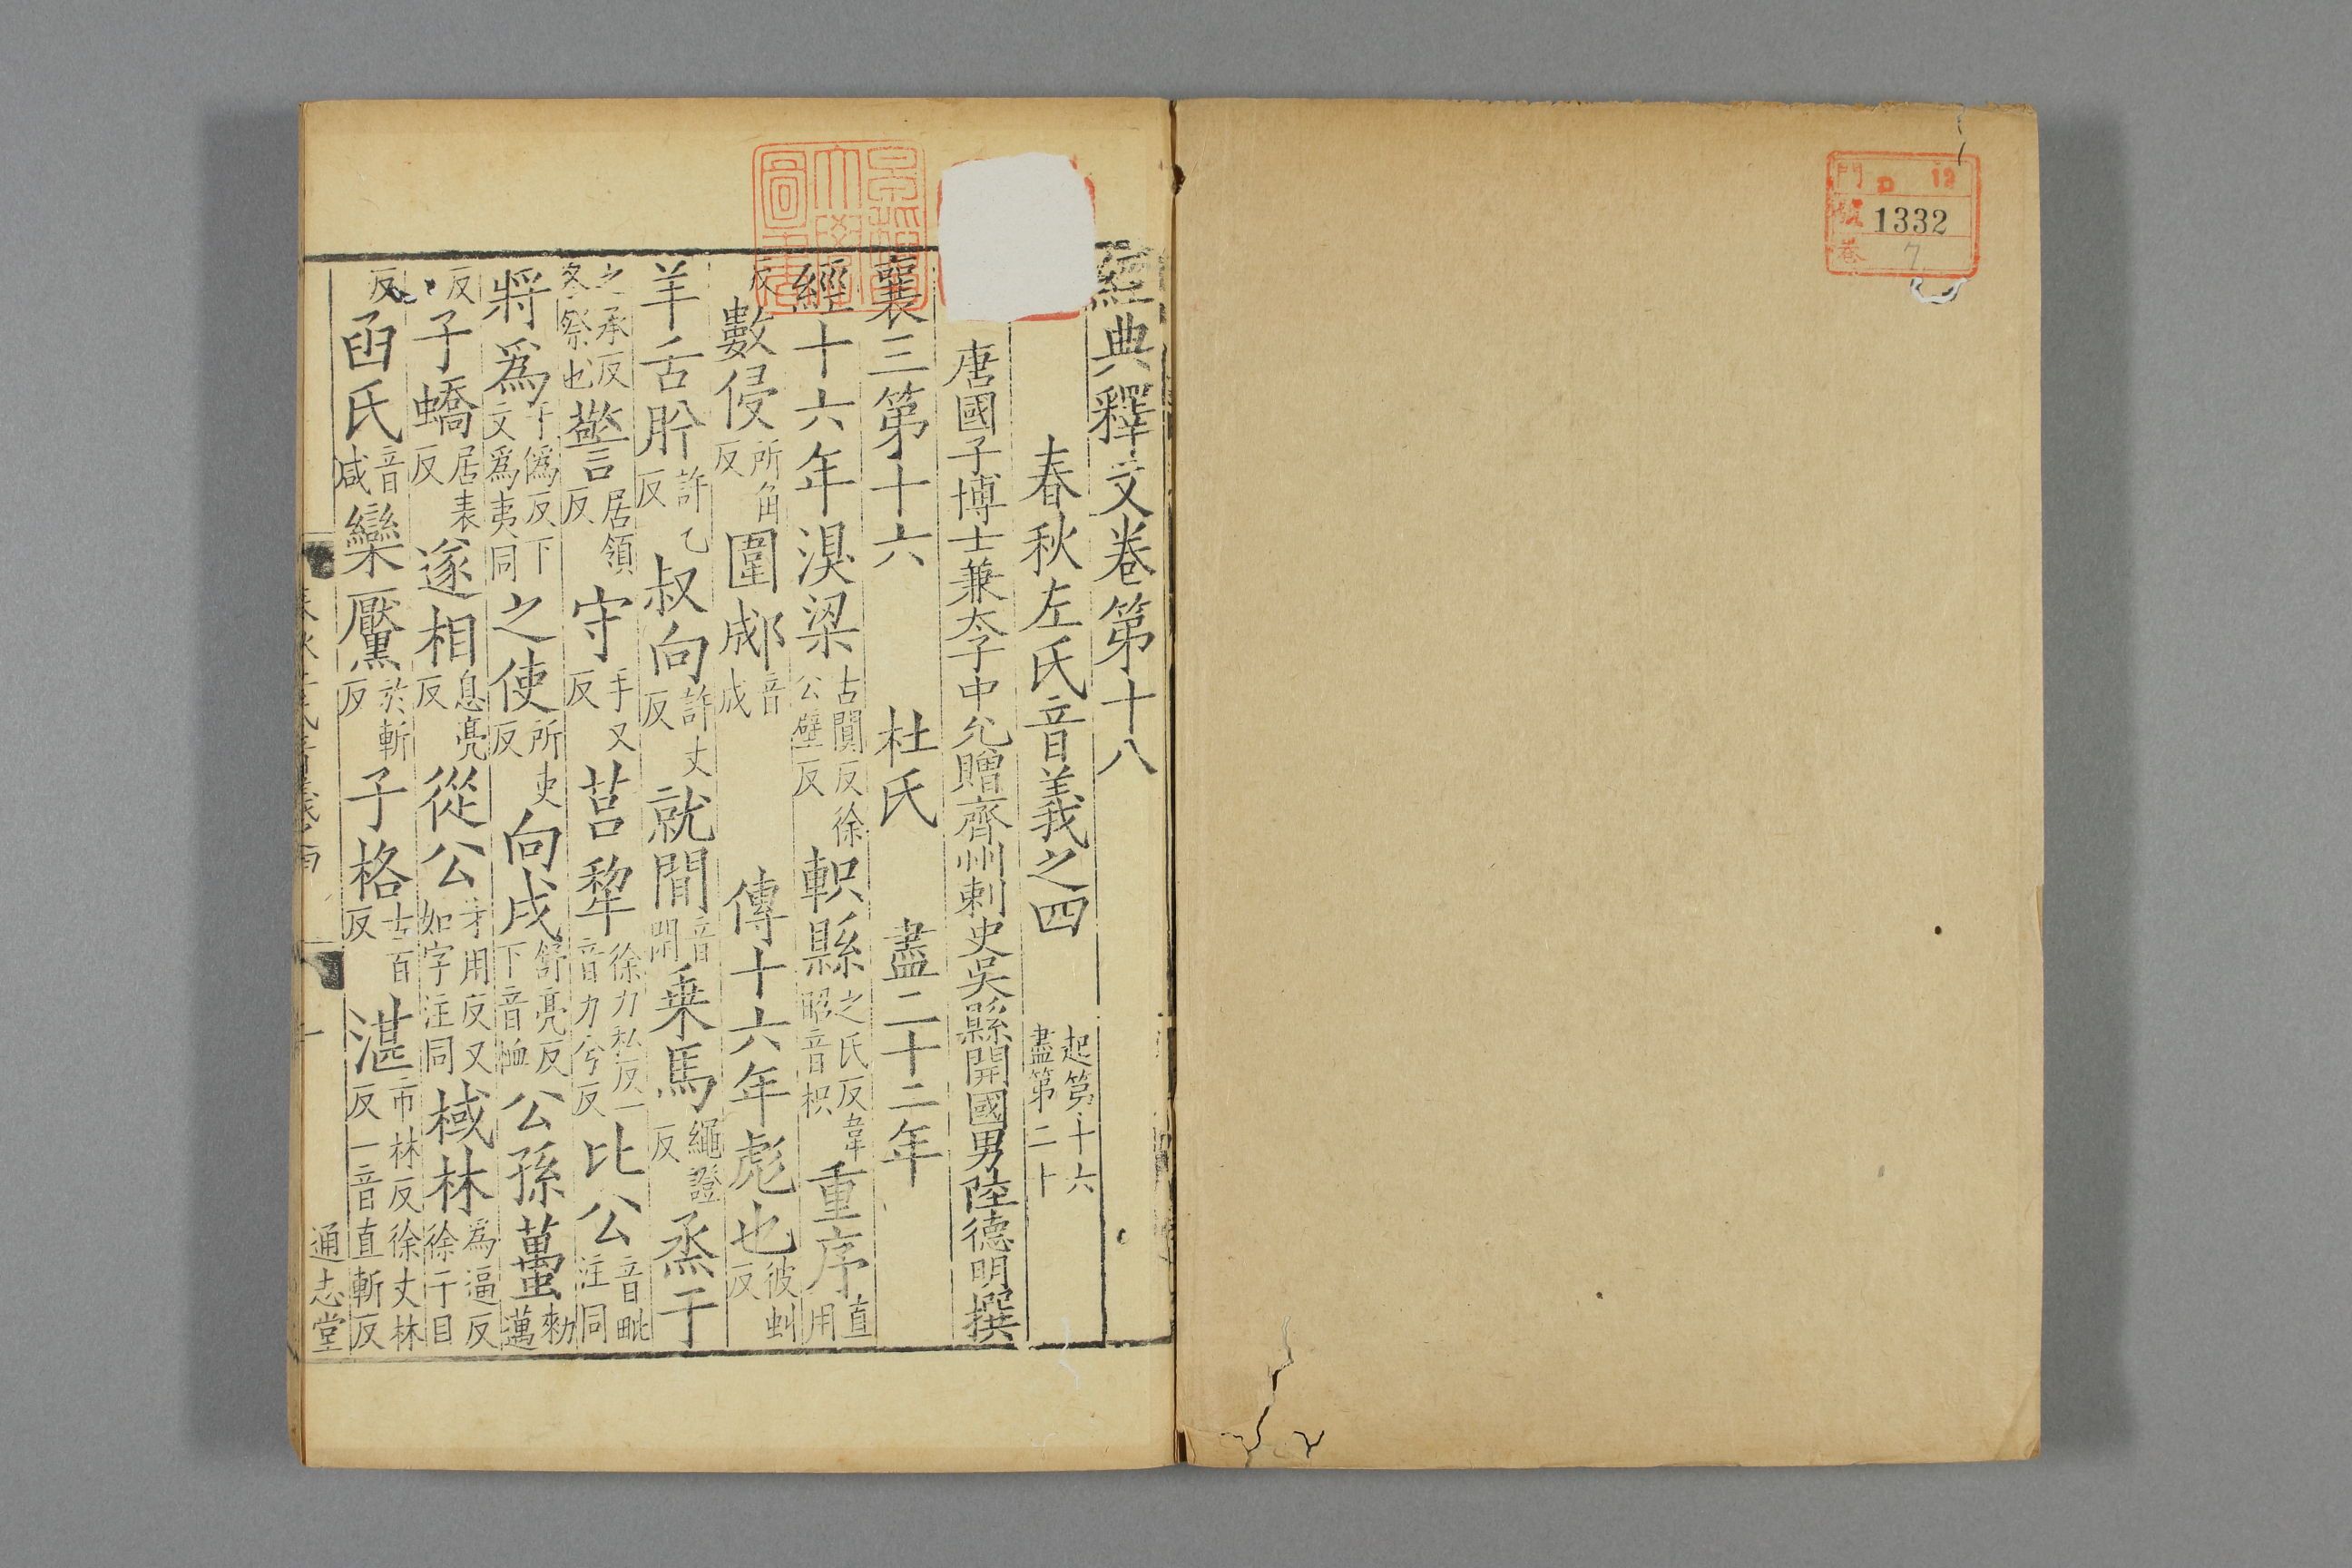 門 D 12
1332
卷 7
經典釋文卷第十八
春秋左氏音義之四 起第十六盡第二十
唐國子博士兼太子中允贈齊州刺史吳縣開國男陸德明撰
襄三第十六 杜氏 盡二十二年
經十六年湨梁 古闃反徐公壁反 軹縣 之氏反韋昭音枳 重序 直用
反 數侵 所角反 圍郕 音成 傳十六年彪也 彼虯反
羊舌肸 許乙反 叔向 許丈反 就閒 音閑 乗馬 繩證反 烝于
之承反冬祭也 警 居領反 守 手又反 莒犂 徐力私反一音力兮反 比公 音毗注同
將爲 于僞反下文爲夷同 之使 所吏反 向戌 舒亮反下音恤 公孫蠆 勑邁
反 子蟜 居表反 遂相 息亮反 從公 才用反又如字注同 棫林 爲逼反徐于目
反 函氏 音咸 欒黶 於斬反 子格 古百反 湛 市林反徐丈林反一音直斬反
通志堂